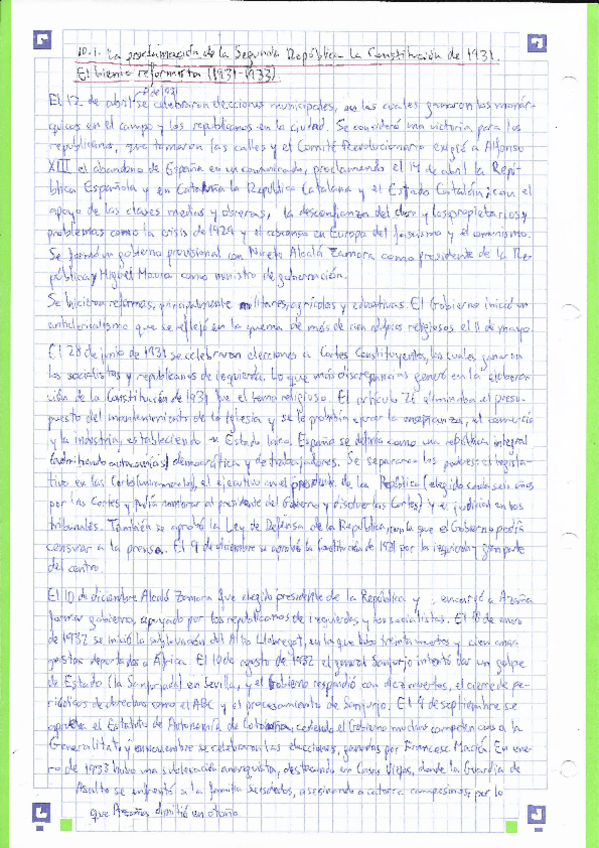 10.1. La proclamación de la Segunda República. La Constitución de 1931.
El bienio reformista (1931-1933)
de 1931
El 12 de abril se celebraron elecciones municipales, en las cuales ganaron los monár-
quicos en el campo y los republicanos en la ciudad. Se consideró una victoria para los
republicanos, que tomaron las calles y el Comité Revolucionario exigió a Alfonso
XIII el abandono de España en un comunicado, proclamando el 14 de abril la Repú-
blica Española y en Cataluña la República Catalana y el Estado Catalán, con el
apoyo de las clases medias y obreras, la desconfianza del clero y los propietarios y
problemas como la crisis de 1929 y el ascenso en Europa del fascismo y el comunismo.
Se formó un gobierno provisional con Niceto Alcalá Zamora como presidente de la Re-
pública y Miguel Maura como ministro de gobernación.
Se hicieron reformas, principalmente militares, agrícolas y educativas. El Gobierno inició un
anticlericalismo que se reflejó en la quema de más de cien edificios religiosos el 11 de mayo.
El 28 de junio de 1931 se celebraron elecciones a Cortes Constituyentes, las cuales ganaron
los socialistas y republicanos de izquierda. Lo que más discrepancias generó en la elabora-
ción de la Constitución de 1931 fue el tema religioso. El artículo 26 eliminaba el presu-
puesto del mantenimiento de la Iglesia y se le prohibía ejercer la enseñanza, el comercio
y la industria, estableciendo un Estado laico. España se definía como una república integral
(admitiendo autonomías) democrática y de trabajadores. Se separaron los poderes: el legisla-
tivo en las Cortes (unicameral), el ejecutivo en el presidente de la República (elegido cada seis años
por las Cortes y podía nombrar al presidente del Gobierno y disolver las Cortes) y el judicial en los
tribunales. También se aprobó la Ley de Defensa de la República, con la que el Gobierno podía
censurar a la prensa. El 9 de diciembre se aprobó la Constitución de 1931 por la izquierda y gran parte
del centro.
El 10 de diciembre Alcalá Zamora fue elegido presidente de la República y encargó a Azaña
formar gobierno, apoyado por los republicanos de izquierdas y los socialistas. El 18 de enero
de 1932 se inició la sublevación del Alto Llobregat, en la que hubo treinta muertos y cien anar-
quistas deportados a África. El 10 de agosto de 1932 el general Sanjurjo intentó dar un golpe
de Estado (la Sanjurjada) en Sevilla, y el Gobierno respondió con diez muertos, el cierre de pe-
riódicos de derechas como el ABC y el procesamiento de Sanjurjo. El 9 de septiembre se
aprueba el Estatuto de Autonomía de Cataluña, cediendo el Gobierno muchas competencias a la
Generalitat, y en noviembre se celebraron las elecciones, ganadas por Francesc Macià. En ene-
ro de 1933 hubo una sublevación anarquista, destacando en Casas Viejas, donde la Guardia de
Asalto se enfrentó a la familia Seisdedos, asesinando a catorce campesinos, por lo
que Azaña dimitió en otoño.